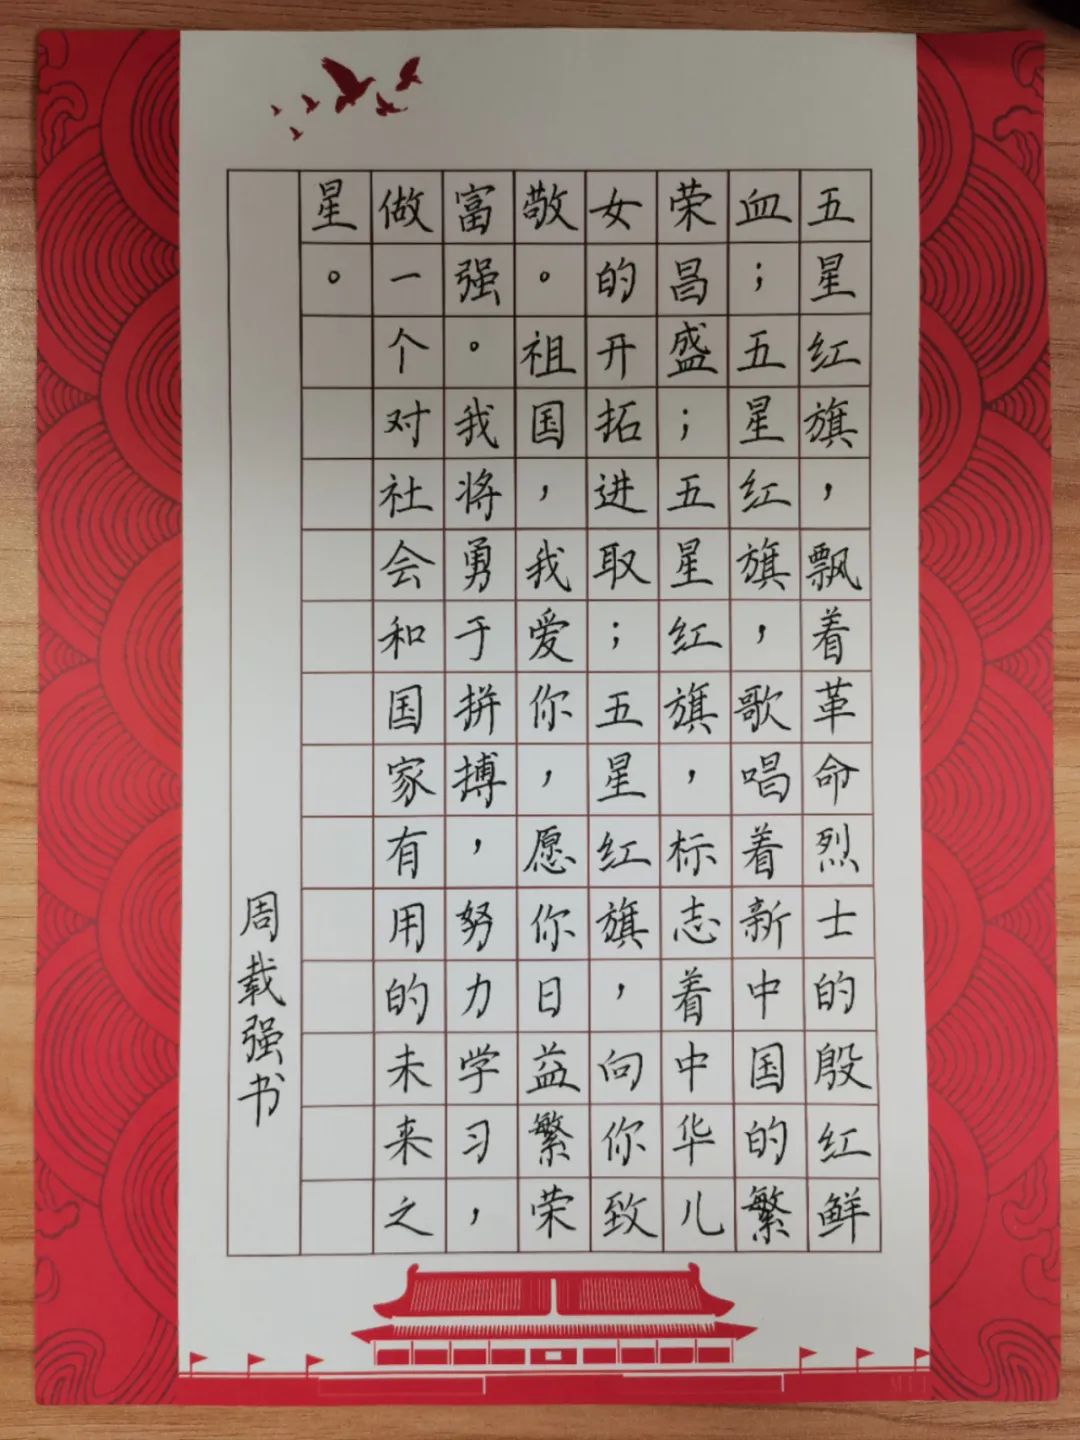 五星红旗，飘着革命烈士的殷红鲜
血；五星红旗，歌唱着新中国的繁
荣昌盛；五星红旗，标志着中华儿
女的开拓进取；五星红旗，向你致
敬。祖国，我爱你，愿你日益繁荣
富强。我将勇于拼搏，努力学习，
做一个对社会和国家有用的未来之
星。
周载强书